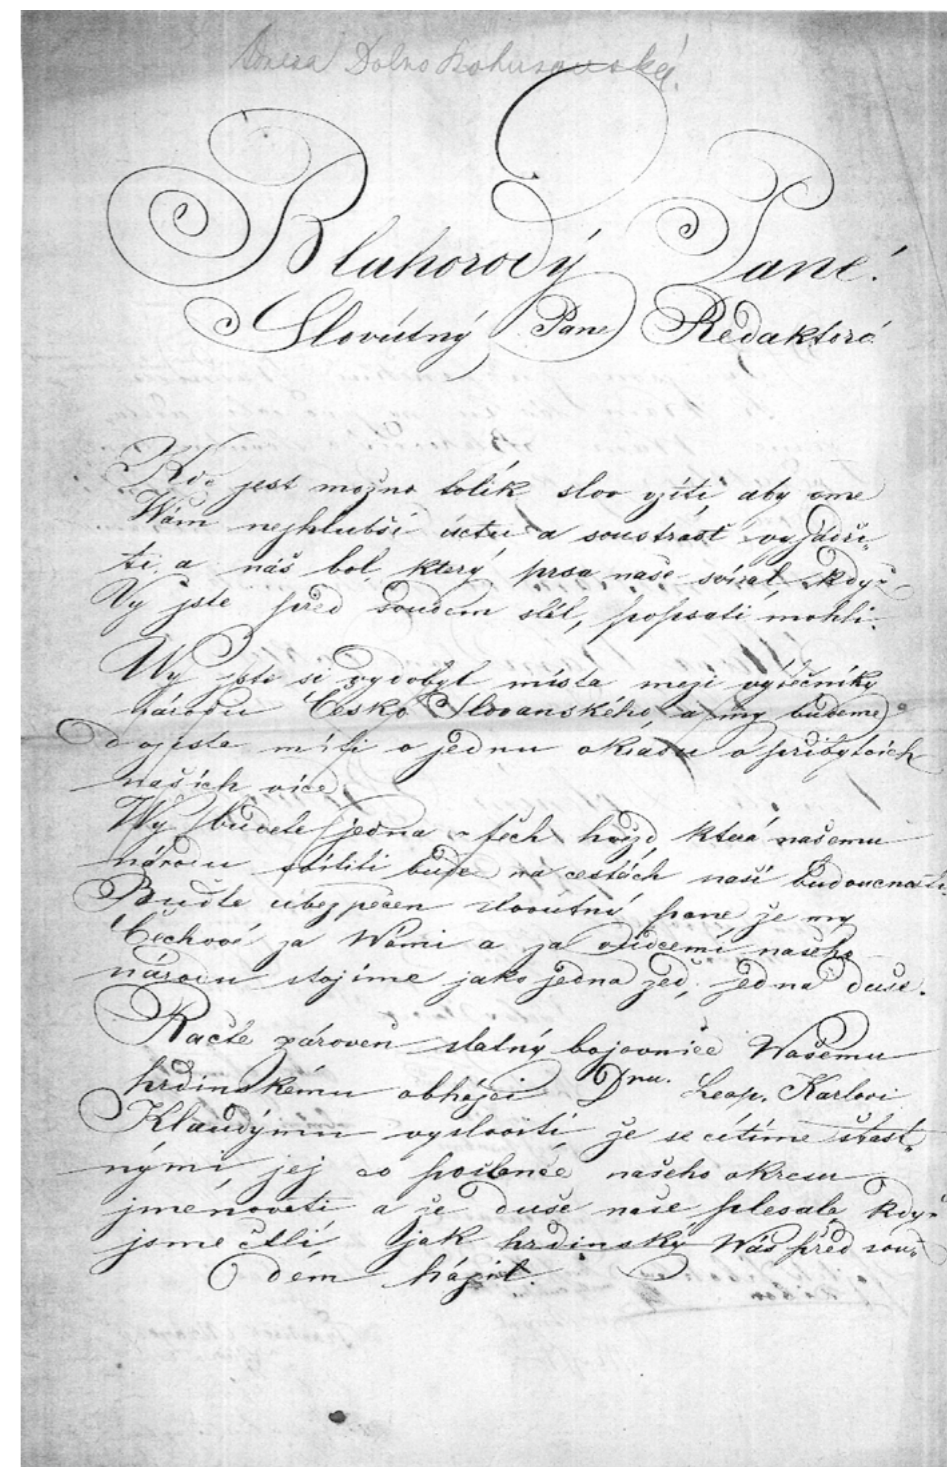 Adresa Dolno Bohusoudská.
Blahorodý Pane!
Slovútný Pane Redaktore
Kde jest možno tolik slov vzíti, aby sme
Wám nejhlubší úctu a soustrast vyjádři-
ti, a náš bol, který prsa naše svíral, když
Vy jste před soudem stál, popsati mohli.
Wy jste si vydobyl místa mezi výtečníky
národu Česko Slovanského, a my budeme
dojista míti o jednu okrasu v příbytcích
našich více
Wy budete jedna z těch hvězd, která našemu
národu svítiti bude na cestách naší budoucnosti.
Buďte ubezpečen slovutný pane, že my
Čechové za Wámi a za vůdcemi našeho
národu stojíme jako jedna zeď, jedna duše.
Račte zároveň statný bojovníče Wašemu
hrdinskému obhájci Dru. Leop. Karlovi
Klaudýmu vysloviti, že se cítíme šťast-
nými, jej co poslance našeho okresu
jmenovati a že duše naše plesala, když
jsme čtli, jak hrdinský Wás před sou-
dem hájil.